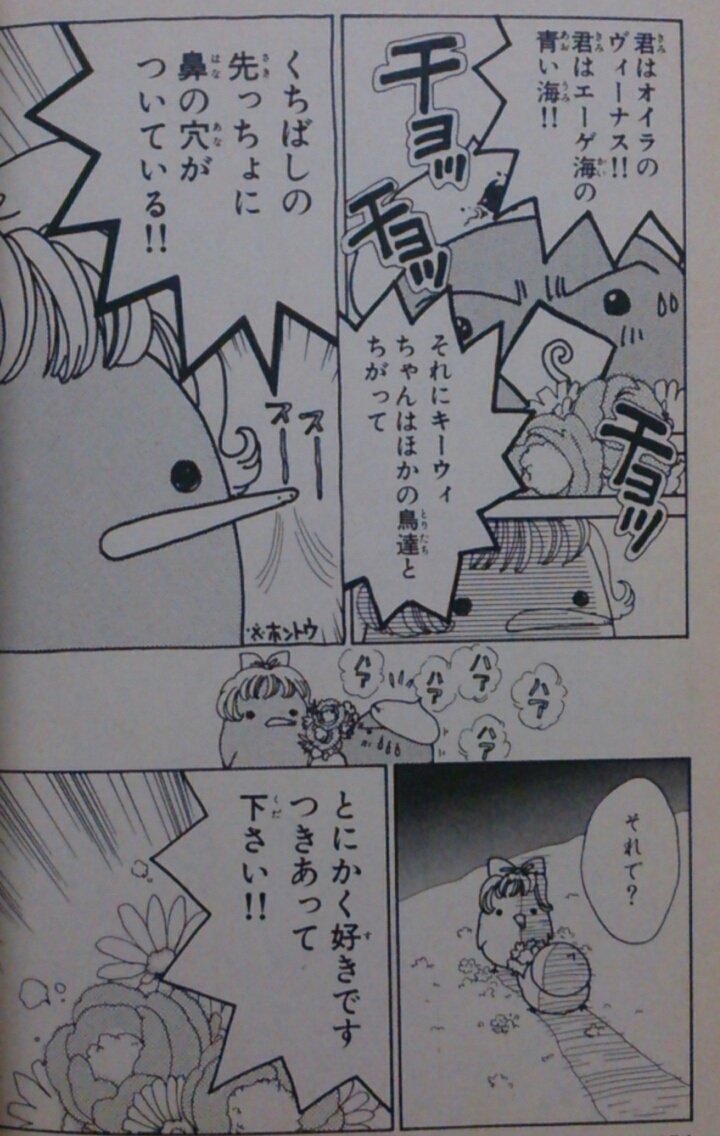 君はオイラの
ヴィーナス!!
君はエーゲ海の
青い海!!
チョッ
チョッ
チョッ
それにキーウィ
ちゃんはほかの鳥達と
ちがって
くちばしの
先っちょに
鼻の穴が
ついている!!
スー
スー
※ホントウ
ハァ
ハァ
ハァ
ハァ
ハァ
それで?
とにかく好きです
つきあって
下さい!!